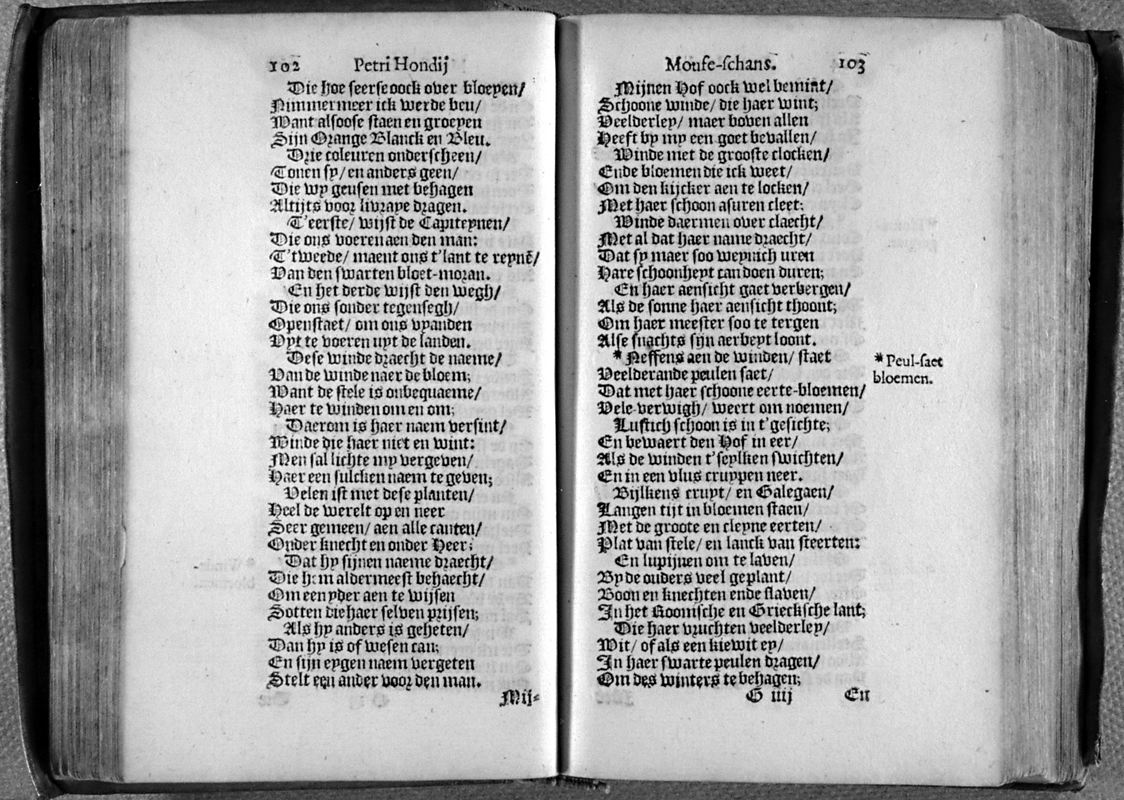 102 Petri Hondij
Die hoe seerse oock over bloeyen/
Nimmermeer ick werde beu/
Want alsoose staen en groeyen
Sijn Orange Blanck en Bleu.
Drie coleuren onderscheen/
Tonen sy/ en anders geen/
Die wy geusen met behagen
Altijts voor livraye dragen.
T'eerste/ wijst de Capiteynen/
Die ons voeren aen den man:
T'tweede/ maent ons t'lant te reynẽ/
Van den swarten bloet-moran.
En het derde wijst den wegh/
Die ons sonder tegensegh/
Openstaet/ om ons vyanden
Vyt te voeren uyt de landen.
Dese winde draecht de naeme/
Van de winde naer de bloem;
Want de stele is onbequaeme/
Haer te winden om en om;
Daerom is haer naem versint/
Winde die haer niet en wint:
Men sal lichte my vergeven/
Haer een sulcken naem te geven;
Velen ist met dese planten/
Heel de werelt op en neer
Seer gemeen/ aen alle canten/
Onder knecht en onder Heer;
Dat hy sijnen naeme draecht/
Die hem aldermeest behaecht/
Om een yder aen te wijsen
Sotten die haer selven prijsen;
Als hy anders is geheten/
Dan hy is of wesen can;
En sijn eygen naem vergeten
Stelt een ander voor den man.
Mij-
Moufe-schans. 103
Mijnen Hof oock wel bemint/
Schoone winde/ die haer wint;
Veelderley/ maer boven allen
Heeft by my een goet bevallen/
Winde met de grooste clocken/
Ende bloemen die ick weet/
Om den kijcker aen te locken/
Met haer schoon asuren cleet:
Winde daermen over claecht/
Met al dat haer name draecht/
Dat sy maer soo weynich uren
Hare schoonheyt can doen duren;
En haer aensicht gaet verbergen/
Als de sonne haer aensicht thoont;
Om haer meester soo te tergen
Alse snachts sijn aerbeyt loont.
* Neffens aen de winden/ staet
Veelderande peulen saet/
Dat met haer schoone eerte-bloemen/
Vele-verwigh/ weert om noemen/
Lustich schoon is in t'gesichte;
En bewaert den Hof in eer/
Als de winden t'seylken swichten/
En in een vlus cruypen neer.
Bijlkens cruyt/ en Galegaen/
Langen tijt in bloemen staen/
Met de groote en cleyne eerten/
Plat van stele/ en lanck van steerten:
En lupijnen om te laven/
By de ouders veel geplant/
Boon en knechten ende slaven/
In het Roomsche en Grieksche lant;
Die haer vruchten veelderley/
Wit/ of als een kiewit ey/
In haer swarte peulen dragen/
Om des winters te behagen;
G iiij En
* Peul-saet
bloemen.